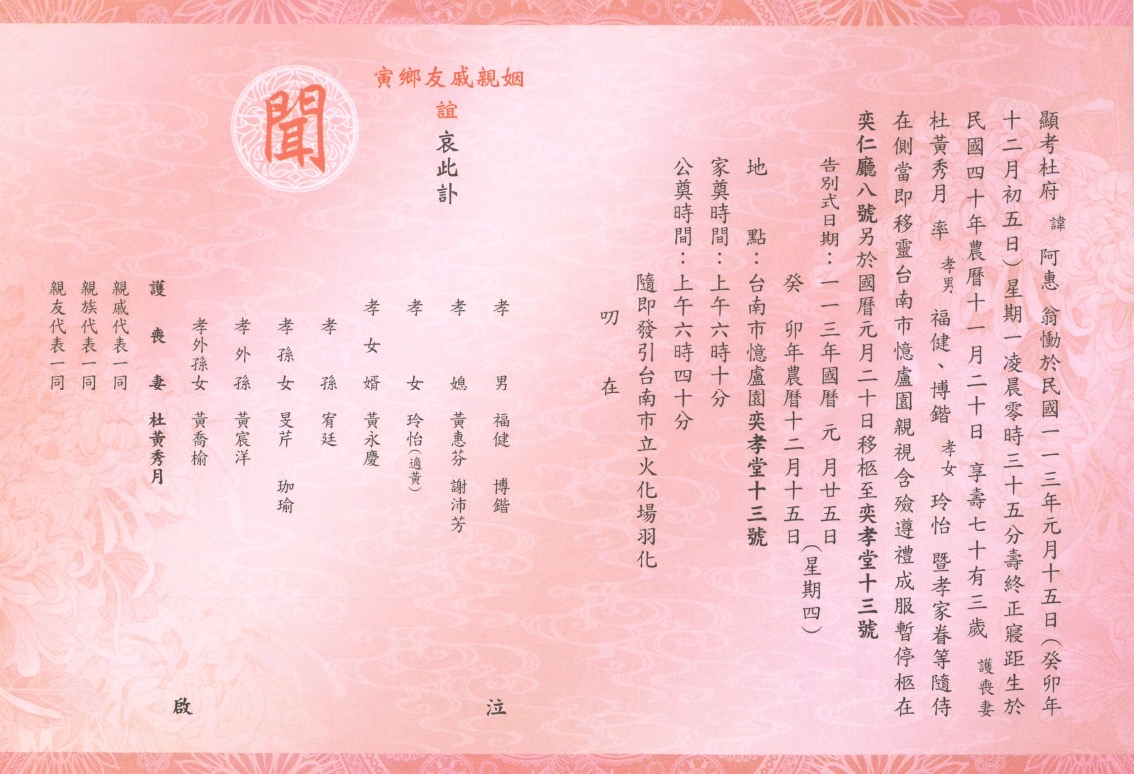 顯考杜府 諱 阿惠 翁慟於民國一一三年元月十五日（癸卯年
十二月初五日）星期一凌晨零時三十五分壽終正寢距生於
民國四十年農曆十一月二十日 享壽七十有三歲 護喪妻
杜黃秀月 率 孝男 福健、博鍇 孝女 玲怡 暨孝家眷等隨侍
在側當即移靈台南市憶廬園親視含殮遵禮成服暫停柩在
奕仁廳八號另於國曆元月二十日移柩至奕孝堂十三號
告別式日期：一一三年國曆 元 月廿五日（星期四）
癸 卯年農曆十二月十五日
地 點：台南市憶廬園奕孝堂十三號
家奠時間：上午六時十分
公奠時間：上午六時四十分
隨即發引台南市立火化場羽化
叨 在
寅鄉友戚親姻
誼 哀此訃
聞
孝 男 福健 博鍇
孝 媳 黃惠芬 謝沛芳
孝 女 玲怡（適黃）
孝女婿 黃永慶
孝 孫 宥廷
孝孫女 旻芹 珈瑜
孝外孫 黃宸洋
孝外孫女 黃喬榆
泣
護 喪 妻 杜黃秀月
親戚代表一同
親族代表一同
親友代表一同
啟